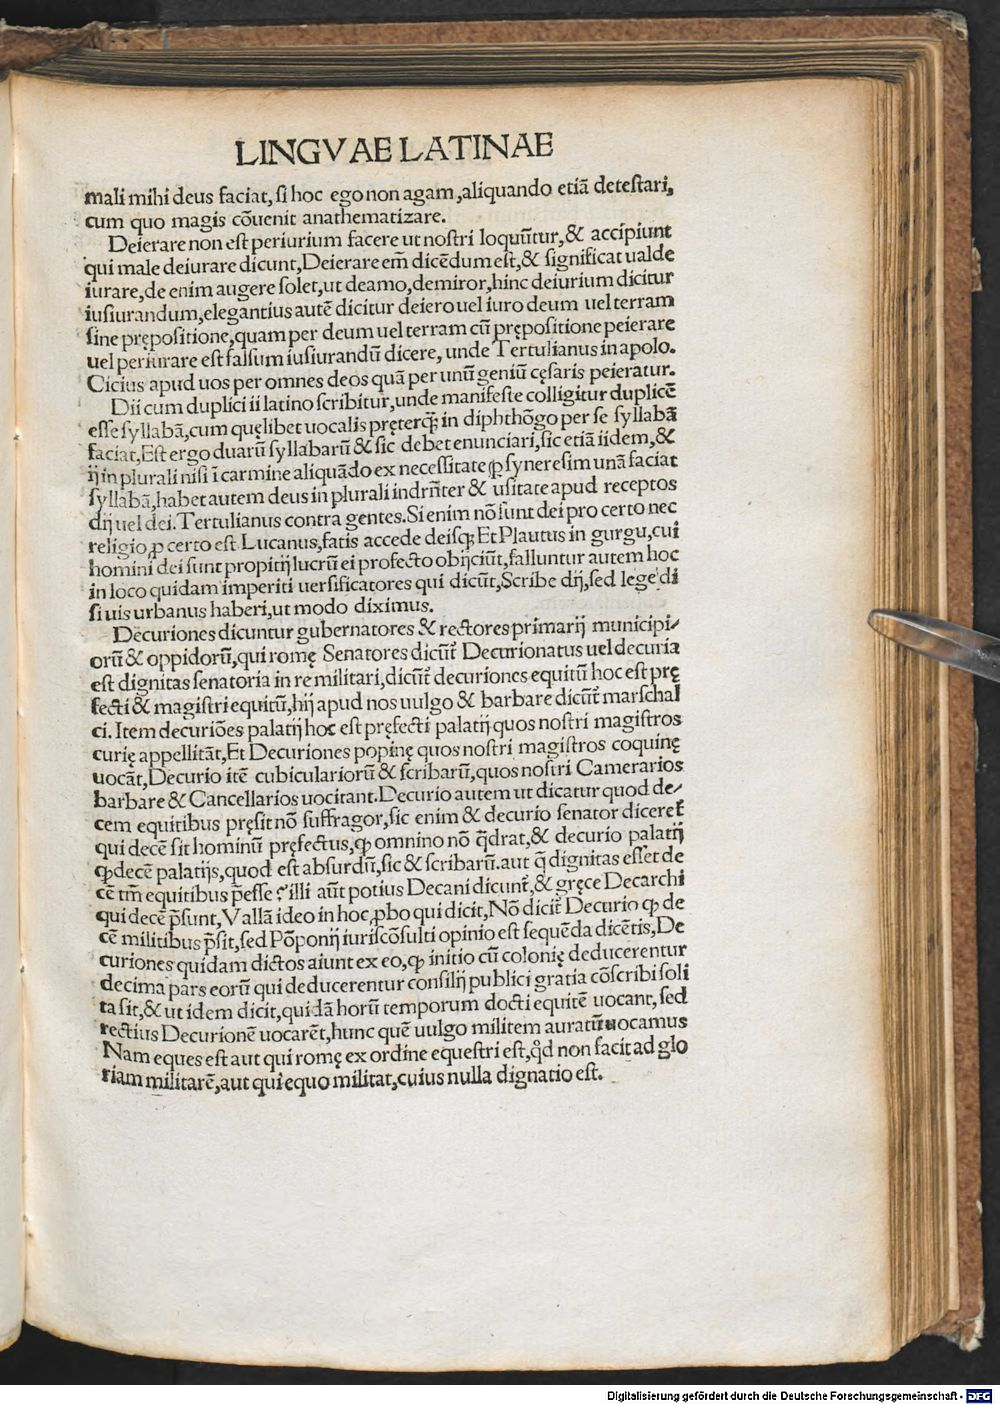 LINGVAE LATINAE
mali mihi deus faciat, si hoc ego non agam, aliquando etiã detestari,
cum quo magis cõuenit anathematizare.
Deierare non est periurium facere ut nostri loquũtur, & accipiunt
qui male deiurare dicunt, Deierare em̃ dicẽdum est, & significat ualde
iurare, de enim augere solet, ut deamo, demiror, hinc deiurium dicitur
iusiurandum, elegantius autẽ dicitur deiero uel iuro deum uel terram
sine prępositione, quam per deum uel terram cũ prępositione peierare
uel periurare est falsum iusiurandũ dicere, unde Tertulianus in apolo.
Cicius apud uos per omnes deos quã per unũ geniũ cęsaris peieratur.
Dii cum duplici ii latino scribitur, unde manifeste colligitur duplicẽ
esse syllabã, cum quęlibet uocalis pręterq̃ in diphthõgo per se syllabã
faciat, Est ergo duarũ syllabarũ & sic debet enunciari, sic etiã iidem, &
ij in plurali nisi ĩ carmine aliquãdo ex necessitate ꝑ syneresim unã faciat
syllabã, habet autem deus in plurali indrñter & usitate apud receptos
dij uel dei. Tertulianus contra gentes. Si enim nõ sunt dei pro certo nec
religio, ꝓ certo est Lucanus, fatis accede deisq; Et Plautus in gurgu, cui
homini dei sunt propitij lucrũ ei profecto obijciũt, falluntur autem hoc
in loco quidam imperiti uersificatores qui dicũt, Scribe dij, sed lege di
si uis urbanus haberi, ut modo diximus.
Decuriones dicuntur gubernatores & rectores primarij municipi⸗
orũ & oppidorũ, qui romę Senatores dicũt̃ Decurionatus uel decuria
est dignitas senatoria in re militari, dicũt̃ decuriones equitũ hoc est prę
fecti & magistri equitũ, hij apud nos uulgo & barbare dicũt̃ marschal
ci. Item decuriões palatij hoc est pręfecti palatij quos nostri magistros
curię appellitãt, Et Decuriones popinę quos nostri magistros coquinę
uocãt, Decurio itẽ cubiculariorũ & scribarũ, quos nostri Camerarios
barbare & Cancellarios uocitant. Decurio autem ut dicatur quod de⸗
cem equitibus pręsit nõ suffragor, sic enim & decurio senator diceret̃
qui decẽ sit hominũ pręfectus, ꝙ omnino nõ q̃drat, & decurio palatij
ꝙ decẽ palatijs, quod est absurdũ, sic & scribarũ. aut q̃ dignitas esset de
cẽ tm̃ equitibus p̃esse? illi aũt potius Decani dicunt̃, & gręce Decarchi
qui decẽ p̃sunt, Vallã ideo in hoc ꝓbo qui dicit, Nõ dicit̃ Decurio ꝙ de
cẽ militibus p̃sit, sed Põponij iuriscõsulti opinio est sequẽda dicẽtis, De
curiones quidam dictos aiunt ex eo, ꝙ initio cũ colonię deducerentur
decima pars eorũ qui deducerentur consilij publici gratia cõscribi soli
ta sit, & ut idem dicit, quidã horũ temporum docti equitẽ uocant, sed
rectius Decurionẽ uocarẽt, hunc quẽ uulgo militem auratũ uocamus
Nam eques est aut qui romę ex ordine equestri est, q̃d non facit ad glo
riam militarẽ, aut qui equo militat, cuius nulla dignatio est.
Digitalisierung gefördert durch die Deutsche Forschungsgemeinschaft - DFG